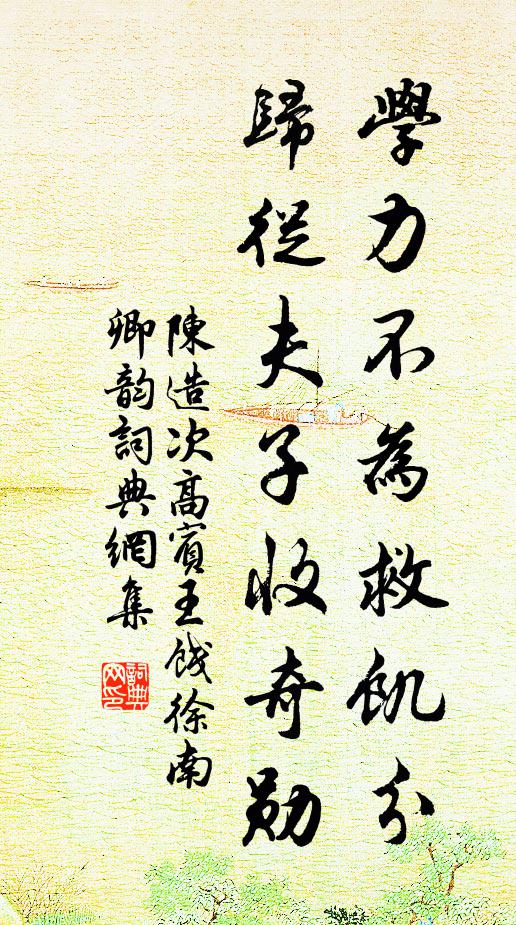 學力不為救飢分
歸從夫子收奇勛
陳造次高賓王餞徐南
卿韵詞典網集
詞典
网印